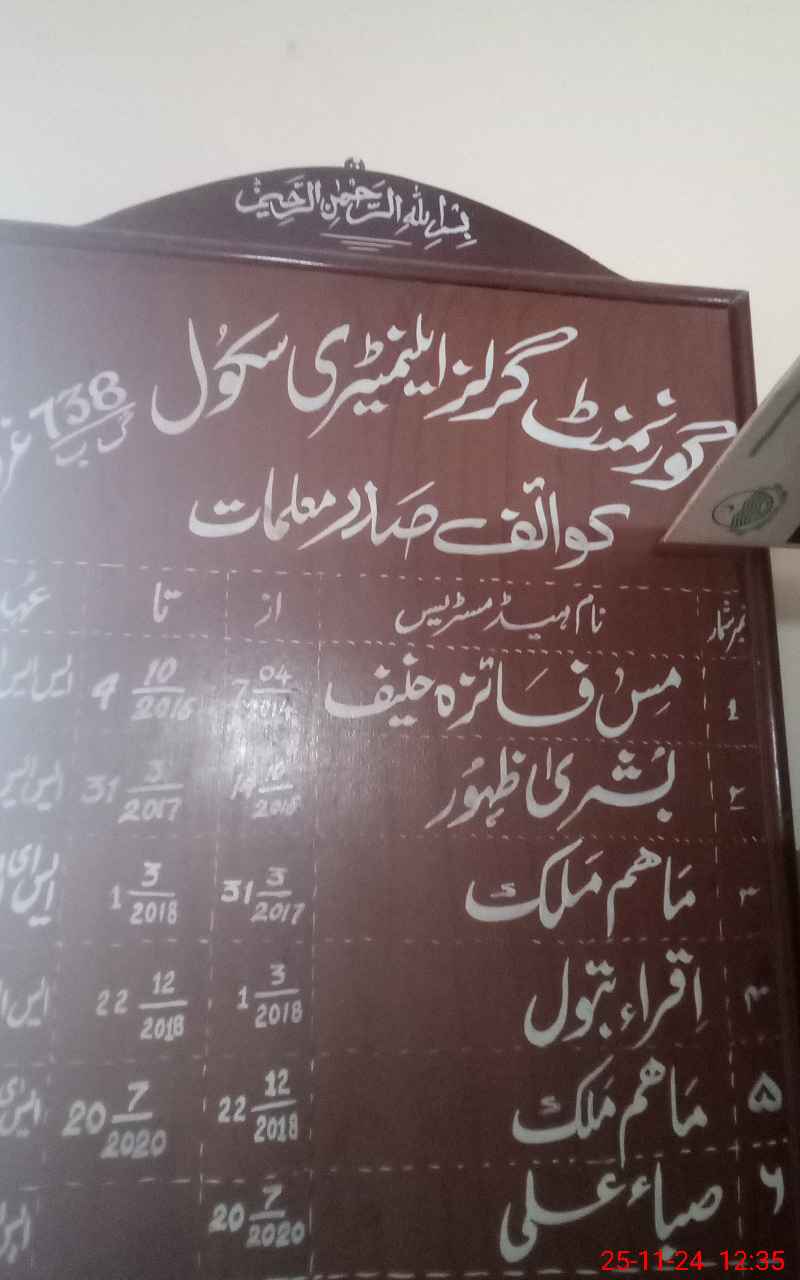 بسم الله الرحمن الرحیم
گورنمنٹ گرلز ایلیمنٹری سکول 738 گ ب
کوائف صدر معلمات
نمبر شمار نام ہیڈ مسٹریس از تا
1 مِس فائزہ حنیف 7 04/2014 4 10/2016
۲ بُشریٰ ظہُور 31 3/2017
۳ ماھم ملک 31 3/2017 1 3/2018
۴ اِقراء بتول 1 3/2018 22 12/2018
۵ ماھم ملک 22 12/2018 20 7/2020
۶ صباء علی 20 7/2020
25-11-24 12:35